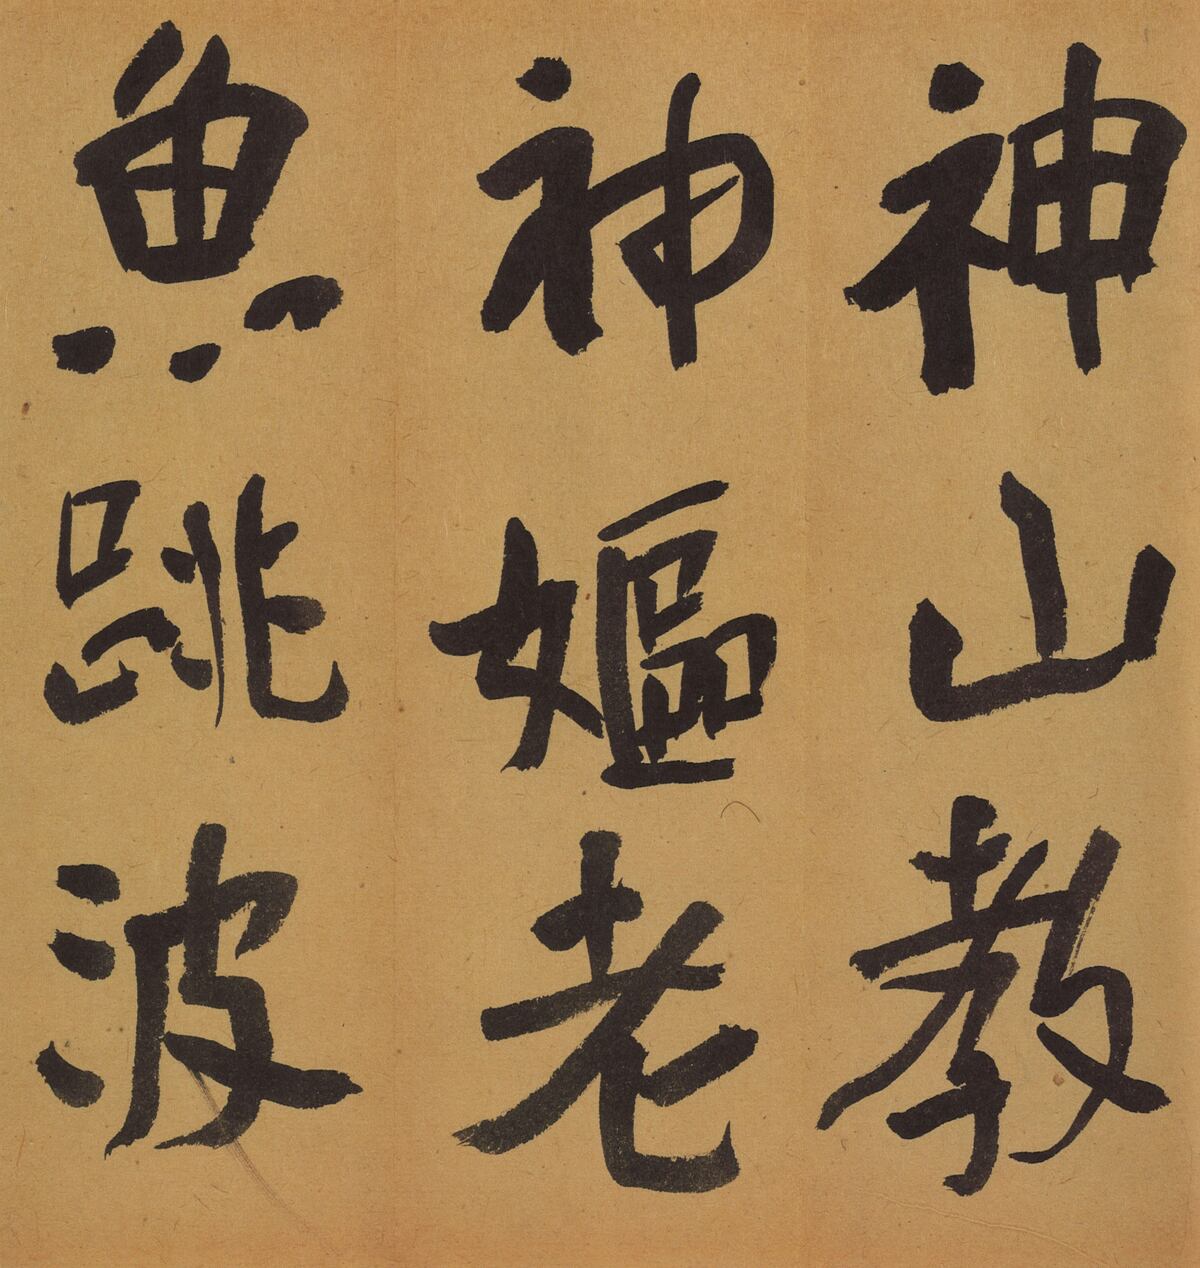 神山教
神嫗老
魚跳波